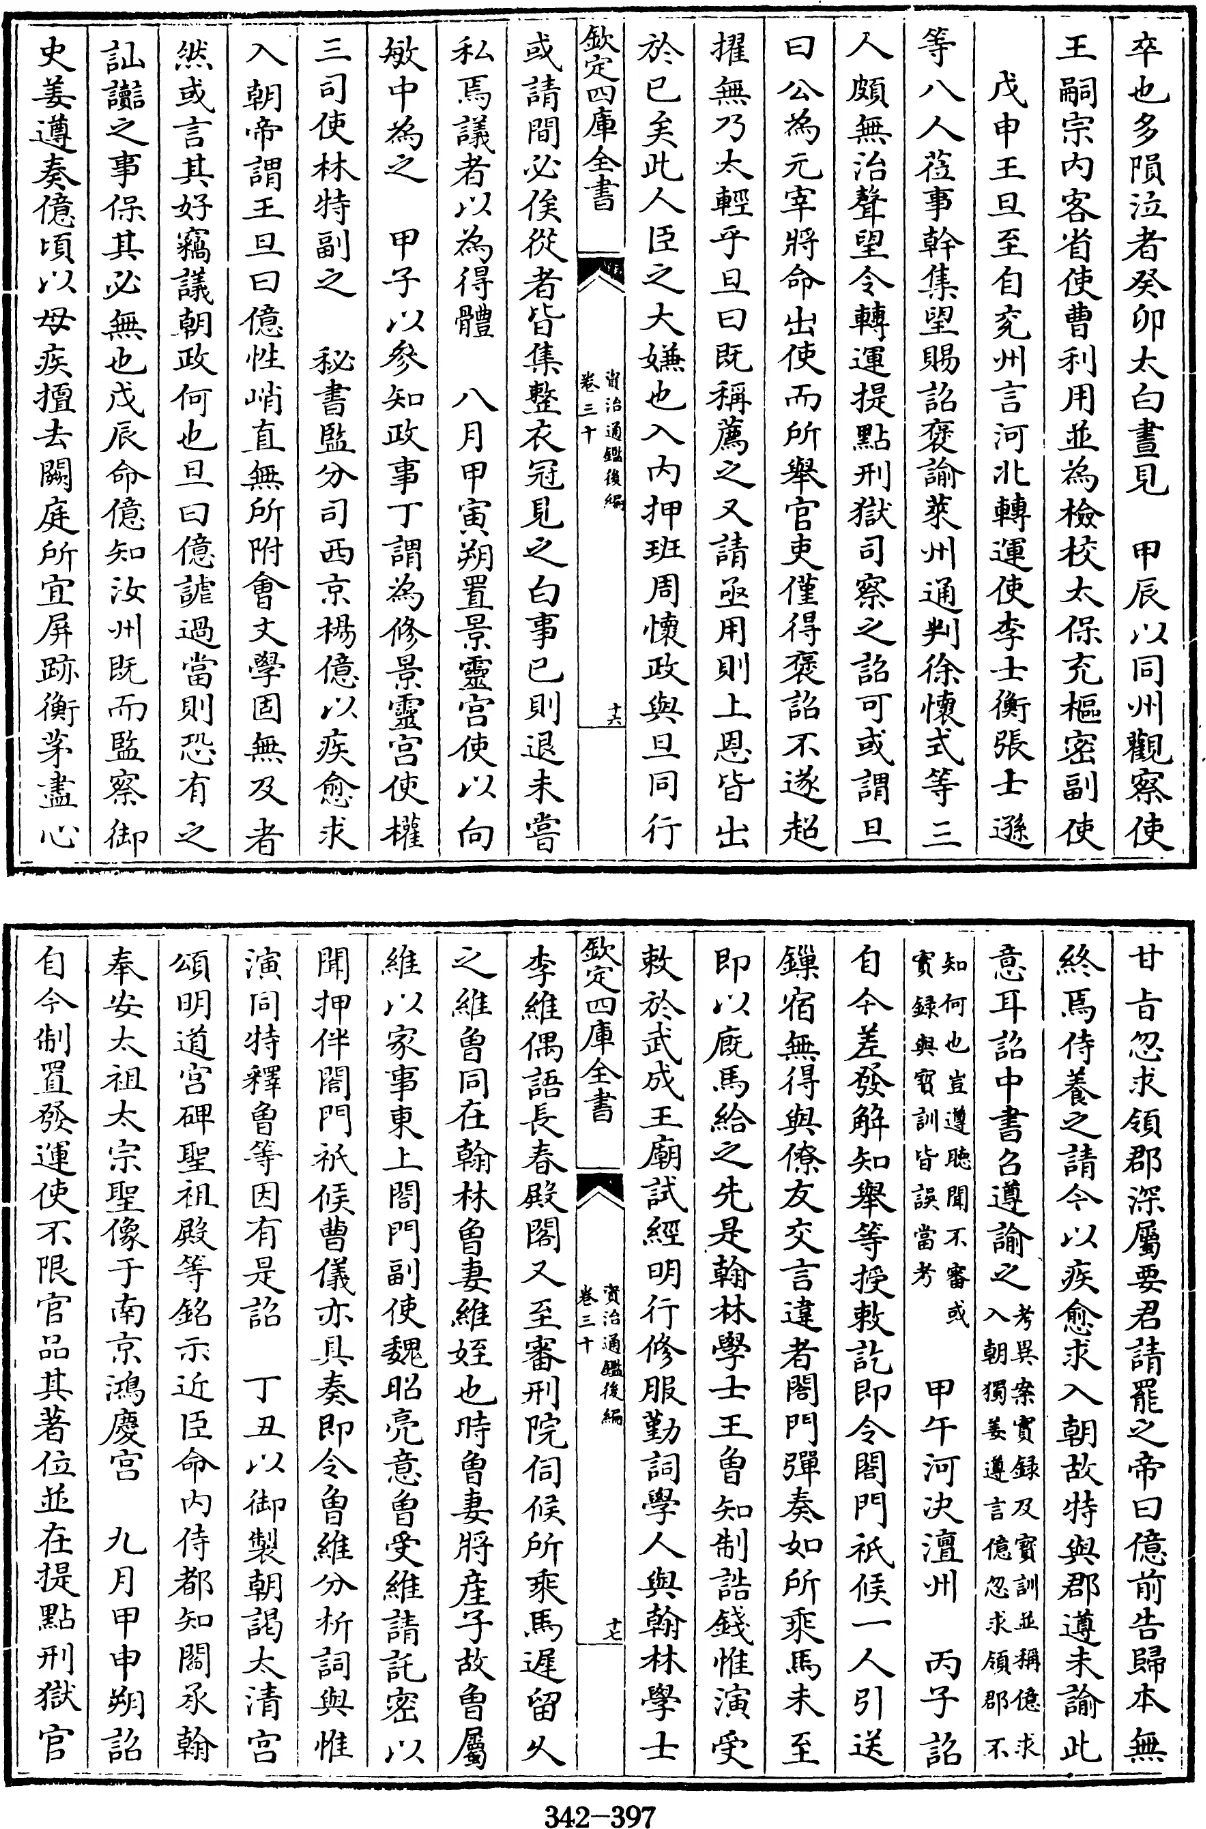 卒也多隕泣者癸卯太白晝見　甲辰以同州觀察使
王嗣宗内客省使曹利用並為檢校太保充樞密副使
戊申王旦至自兖州言河北轉運使李士衡張士遜
等八人蒞事幹集望賜詔襃諭萊州通判徐懷式等三
人頗無治聲望令轉運提點刑獄司察之詔可或謂旦
曰公為元宰將命出使而所舉官吏僅得襃詔不遂超
擢無乃太輕乎旦曰既稱薦之又請亟用則上恩皆出
於已矣此人臣之大嫌也入内押班周懷政與旦同行
欽定四庫全書
資治通鑑後編
卷三十
十六
或請間必俟從者皆集整衣冠見之白事已則退未嘗
私焉議者以為得體　八月甲寅朔置景靈宫使以向
敏中為之　甲子以參知政事丁謂為修景靈宫使權
三司使林特副之　秘書監分司西京楊億以疾愈求
入朝帝謂王旦曰億性峭直無所附會文學固無及者
然或言其好竊議朝政何也旦曰億謔過當則恐有之
訕讟之事保其必無也戊辰命億知汝州既而監察御
史姜遵奏億頃以母疾擅去闕庭所宜屏跡衡茅盡心
甘㫖忽求領郡深屬要君請罷之帝曰億前告歸本無
終焉侍養之請今以疾愈求入朝故特與郡遵未諭此
意耳詔中書召遵諭之考異案實録及寳訓並稱億求
入朝獨姜遵言億忽求領郡不
知何也豈遵聽聞不審或
實録與寳訓皆誤當考　甲午河决澶州　丙子詔
自今差發解知舉等授敕訖即令閤門祇候一人引送
鏁宿無得與僚友交言違者閤門彈奏如所乘馬未至
即以廐馬給之先是翰林學士王曾知制誥錢惟演受
敕於武成王廟試經明行修服勤詞學人與翰林學士
欽定四庫全書
資治通鑑後編
卷三十
十七
李維偶語長春殿閣又至審刑院伺候所乘馬遲留久
之維曾同在翰林曾妻維姪也時曾妻將産子故曾屬
維以家事東上閤門副使魏昭亮意曾受維請託密以
聞押伴閤門祇候曹儀亦具奏即令曾維分析詞與惟
演同特釋曾等因有是詔　丁丑以御製朝謁太清宫
頌明道宫碑聖祖殿等銘示近臣命内侍都知閻承翰
奉安太祖太宗聖像于南京鴻慶宫　九月甲申朔詔
自今制置發運使不限官品其著位並在提點刑獄官
342-397